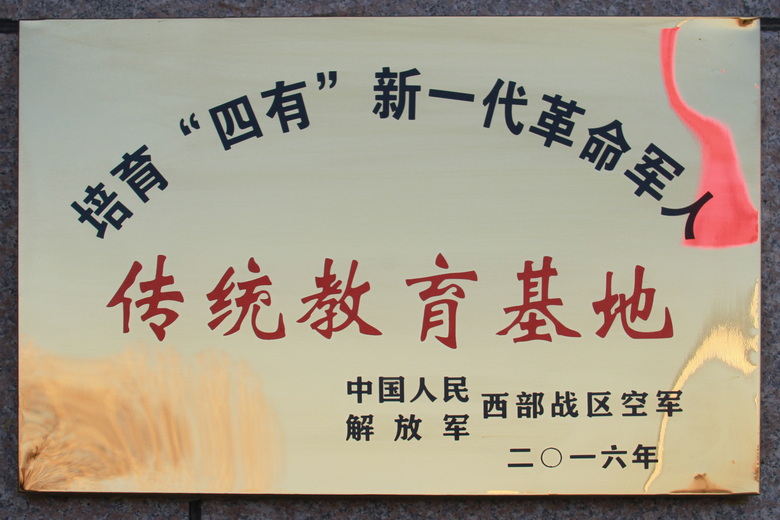 培育“四有”新一代革命军人
传统教育基地
中国人民
解放军
西部战区空军
二〇一六年